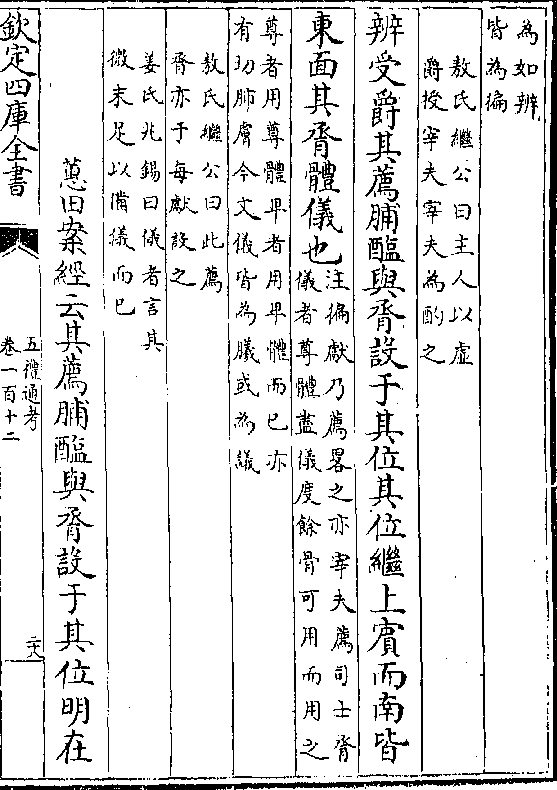 為如辨
皆為徧
敖氏繼公曰主人以虛
爵授宰夫宰夫為酌之
辨受爵其薦脯醢與脀設于其位其位繼上賓而南皆
東面其脀體儀也
注徧獻乃薦畧之亦宰夫薦司士脀
儀者尊體盡儀度餘骨可用而用之
尊者用尊體卑者用卑體而已亦
有切肺膚今文儀皆為䐅或為議
敖氏繼公曰此薦
脀亦于每獻設之
姜氏兆錫曰儀者言其
微末足以備儀而已
蕙田案經云其薦脯醢與脀設于其位明在
欽定四庫全書
五禮通考
卷一百十二
二六